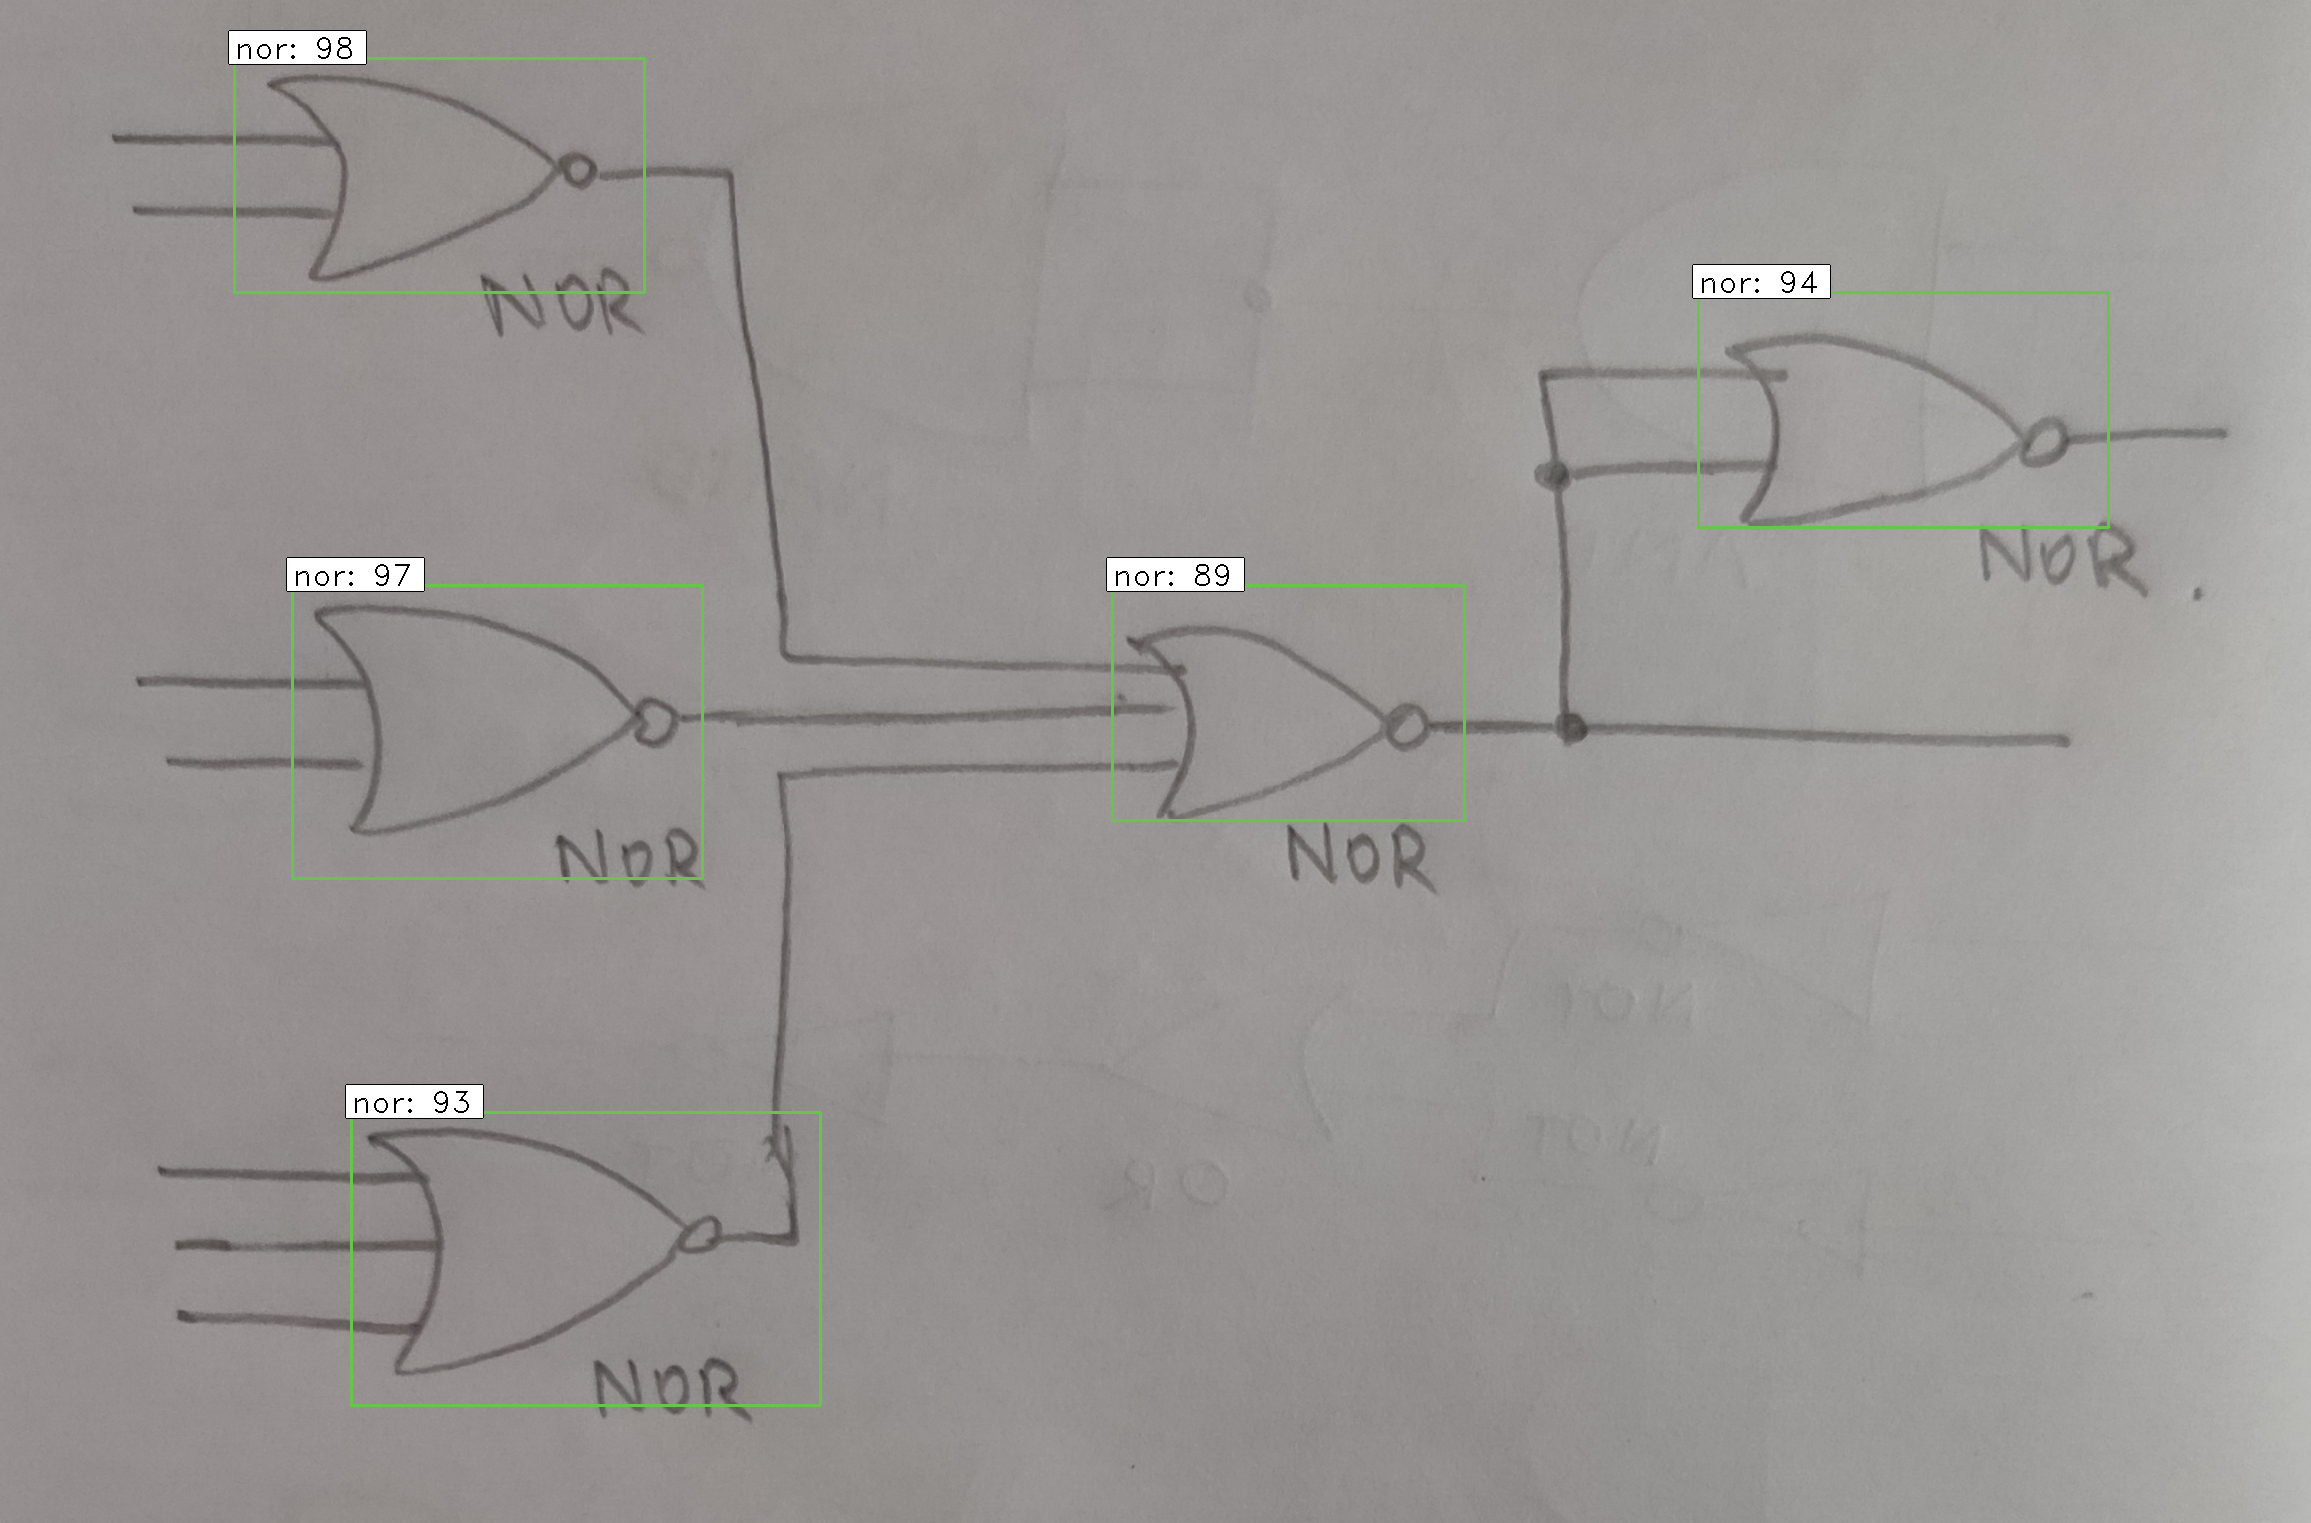 nor: 98
NOR
nor: 94
NOR.
nor: 97
NOR
nor: 89
NOR
nor: 93
NOR
NOT
NOT
OR